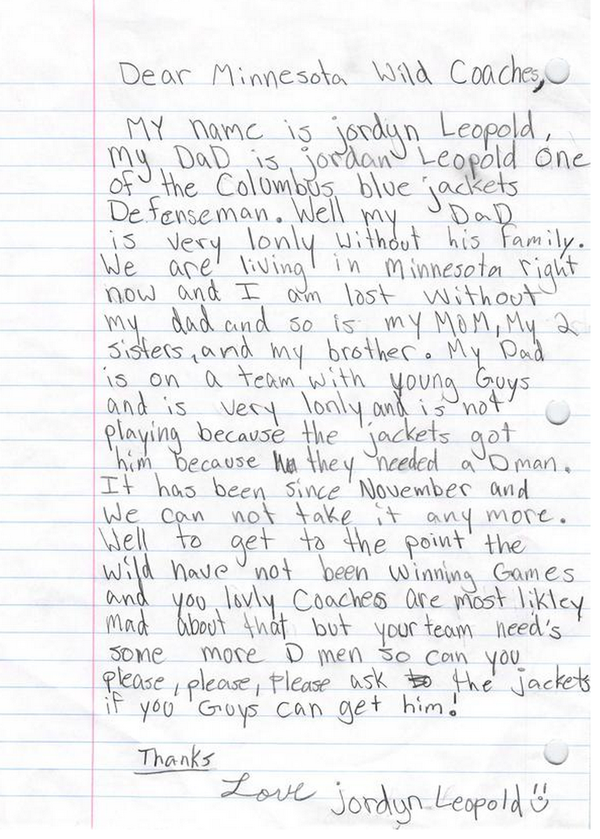 Dear Minnesota Wild Coaches,
MY name is jordyn Leopold,
my DaD is jordan Leopold One
of the Columbus blue jackets
Defenseman. Well my DaD
is very lonly without his family.
We are living in Minnesota right
now and I am lost without
my dad and so is my MOM, My 2
sisters, and my brother. My Dad
is on a team with young Guys
and is very lonly and is not
playing because the jackets got
him because they needed a Dman.
It has been since November and
We can not take it any more.
Well to get to the point the
wild have not been winning Games
and you lovly Coaches are most likley
mad about that but your team need's
some more D men so can you
please, please, Please ask the jackets
if you Guys can get him!
Thanks
Love jordyn Leopold